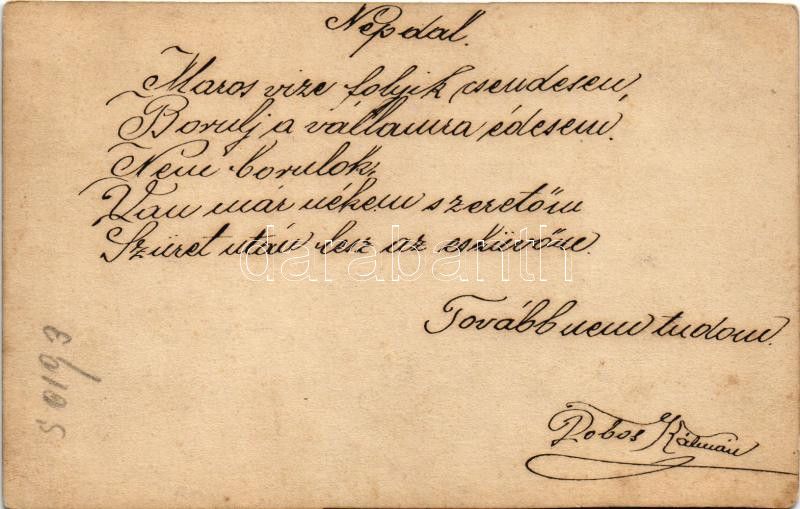 Népdal.
Maros vize folyik csendesen,
Borulj a vállamra édesem.
Nem borulok,
Van már nékem szeretőm
Szüret után lesz az esküvőm.
Tovább nem tudom.
Dobos Kálmán
50193
darabanth